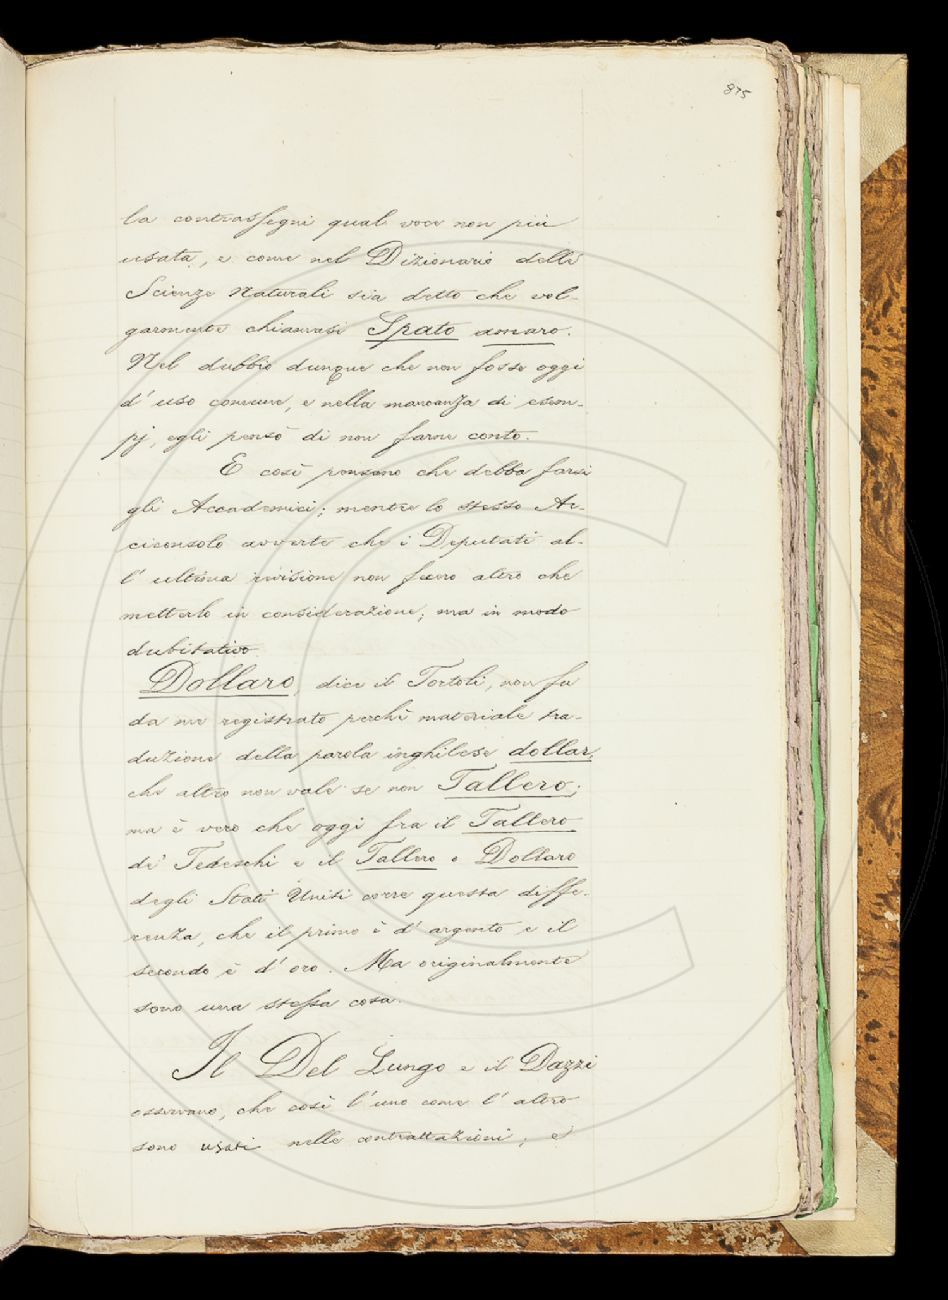 875
la contrassegni qual voce non più
usata, e come nel Dizionario delle
Scienze Naturali sia detto che vol-
garmente chiamasi Spato amaro.
Nel dubbio dunque che non fosse oggi
d' uso comune, e nella mancanza di esem-
pj, egli pensò di non farne conto.
E così pensano che debba farsi
gli Accademici; mentre lo stesso Ar-
ciconsolo avverte che i Deputati al-
l' ultima revisione non fecero altro che
metterlo in considerazione; ma in modo
dubitativo.
Dollaro, dice il Tortoli, non fu
da me registrato perchè materiale tra-
duzione della parola inghilese dollar,
che altro non vale se non Tallero;
ma è vero che oggi fra il Tallero
de' Tedeschi e il Tallero o Dollaro
degli Stati Uniti corre questa diffe-
renza, che il primo è d' argento e il
secondo è d' oro. Ma originalmente
sono una stessa cosa.
Il Del Lungo e il Dazzi
osservano, che così l' uno come l' altro
sono usati nelle contrattazioni; e